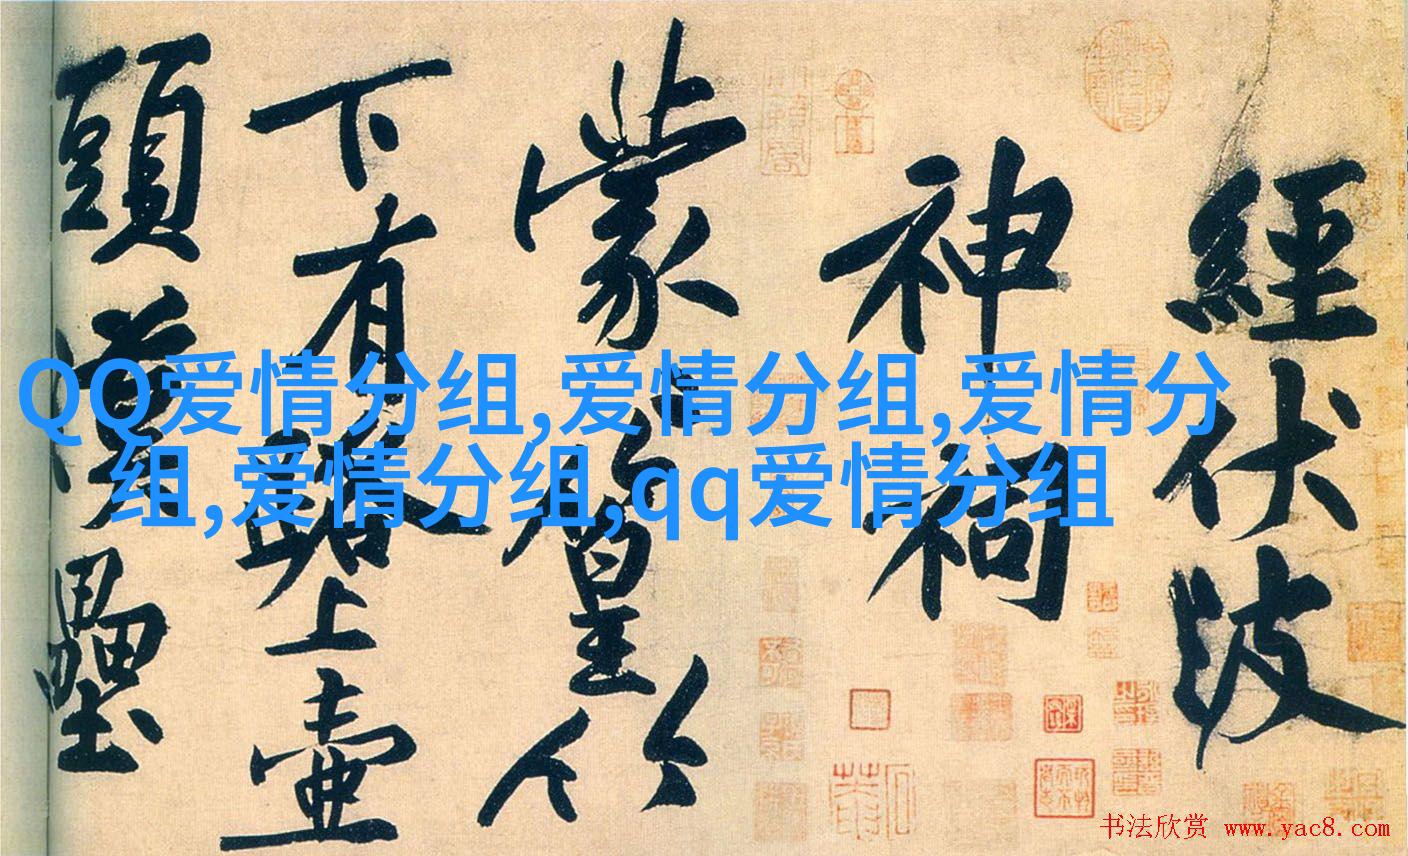 經伏波
神祠
蒙蒙篁竹
下有路上壺
頭漢壘
QQ爱情分组,爱情分组,爱情分
组,爱情分组,qq爱情分组
书法欣赏 www.yac8.com